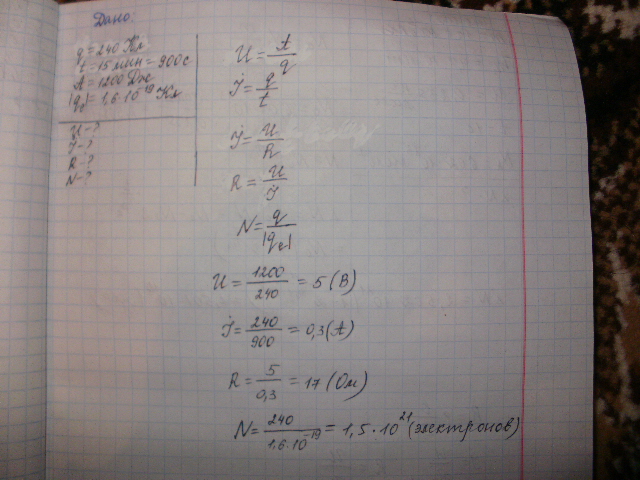 Дано:
q = 240 Кл
t = 15 мин = 900 с
A = 1200 Дж
|qe| = 1,6·10⁻¹⁹ Кл
U - ?
I - ?
R - ?
N - ?
U = A/q
I = q/t
I = U/R
R = U/I
N = q/|qe|
U = 1200/240 = 5 (В)
I = 240/900 = 0,3 (А)
R = 5/0,3 = 17 (Ом)
N = 240/1,6·10⁻¹⁹ = 1,5·10²¹ (электронов)